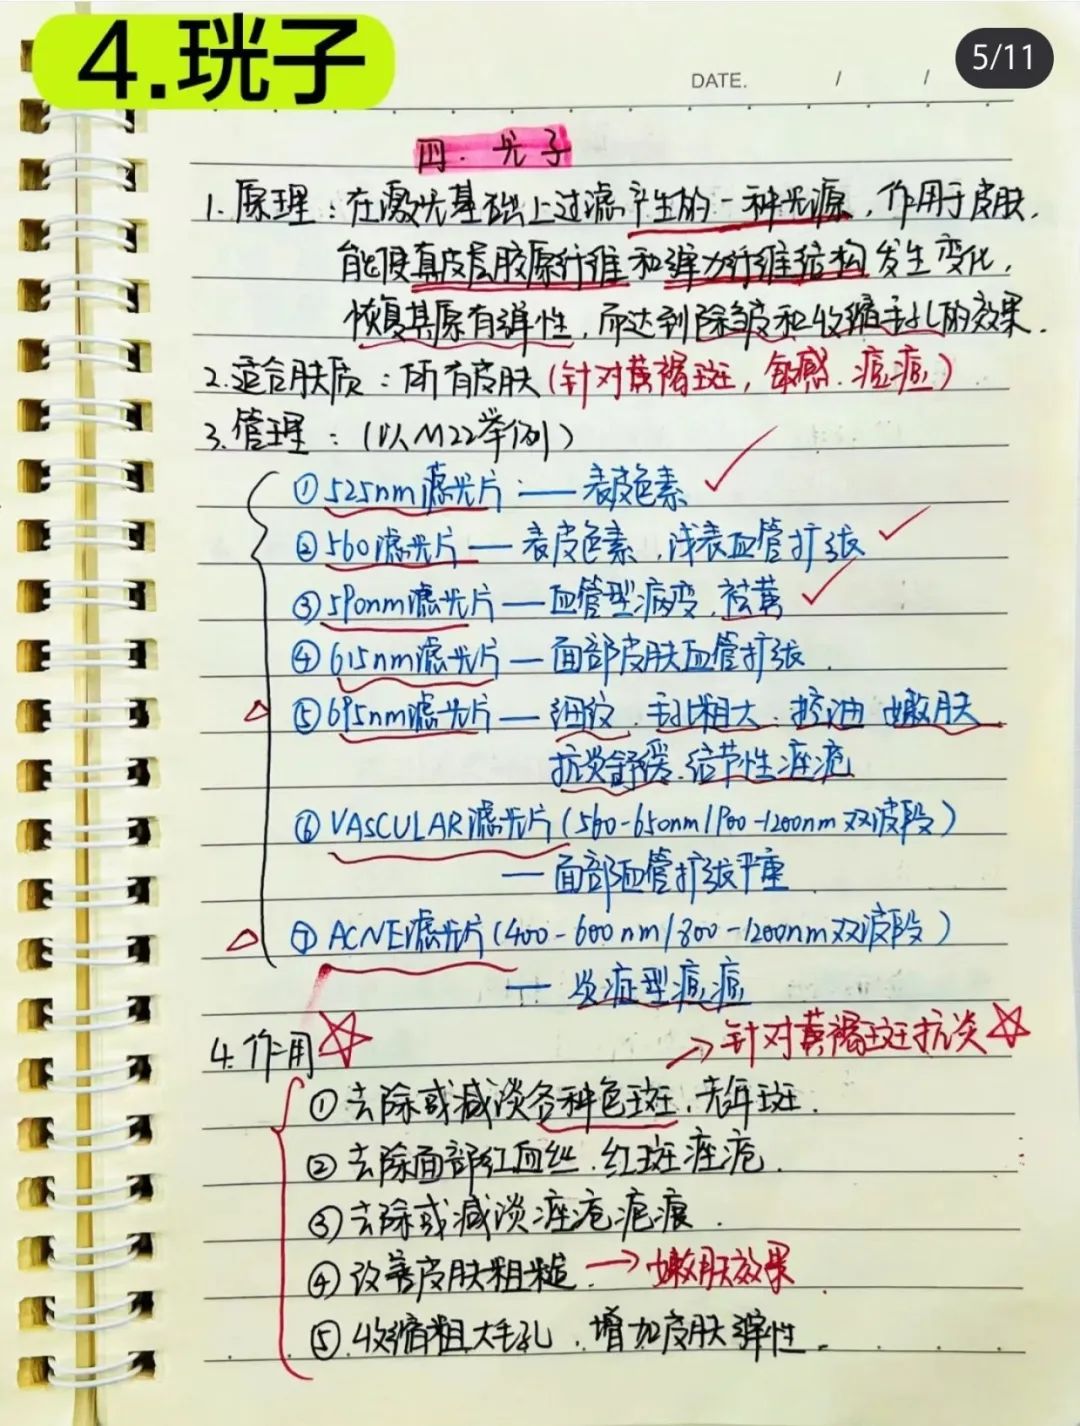 4.珖子
5/11
DATE. / /
四. 光子
1.原理:在激光基础上过滤产生的一种光源,作用于皮肤,
能使真皮层胶原纤维和弹力纤维结构发生变化,
恢复其原有弹性,而达到除皱和收缩毛孔的效果.
2.适合肤质:所有皮肤(针对黄褐斑,敏感.痘痘)
3.管理:(以M22举例)
①525nm滤光片——表皮色素
②560滤光片——表皮色素.浅表血管扩张
③590nm滤光片——血管型病变.祛黄
④615nm滤光片——面部皮肤血管扩张.
⑤695nm滤光片——细纹.毛孔粗大.控油 嫩肤
抗炎舒缓.结节性痤疮
⑥VASCULAR滤光片(560-650nm/900-1200nm双波段)
——面部血管扩张严重
⑦ACNE滤光片(400-600nm/800-1200nm双波段)
——炎症型痘痘
4.作用
→针对黄褐斑抗炎
①去除或减淡各种色斑.老年斑.
②去除面部红血丝.红斑痤疮.
③去除或减淡痤疮疤痕.
④改善皮肤粗糙.→嫩肤效果
⑤收缩粗大毛孔.增加皮肤弹性.